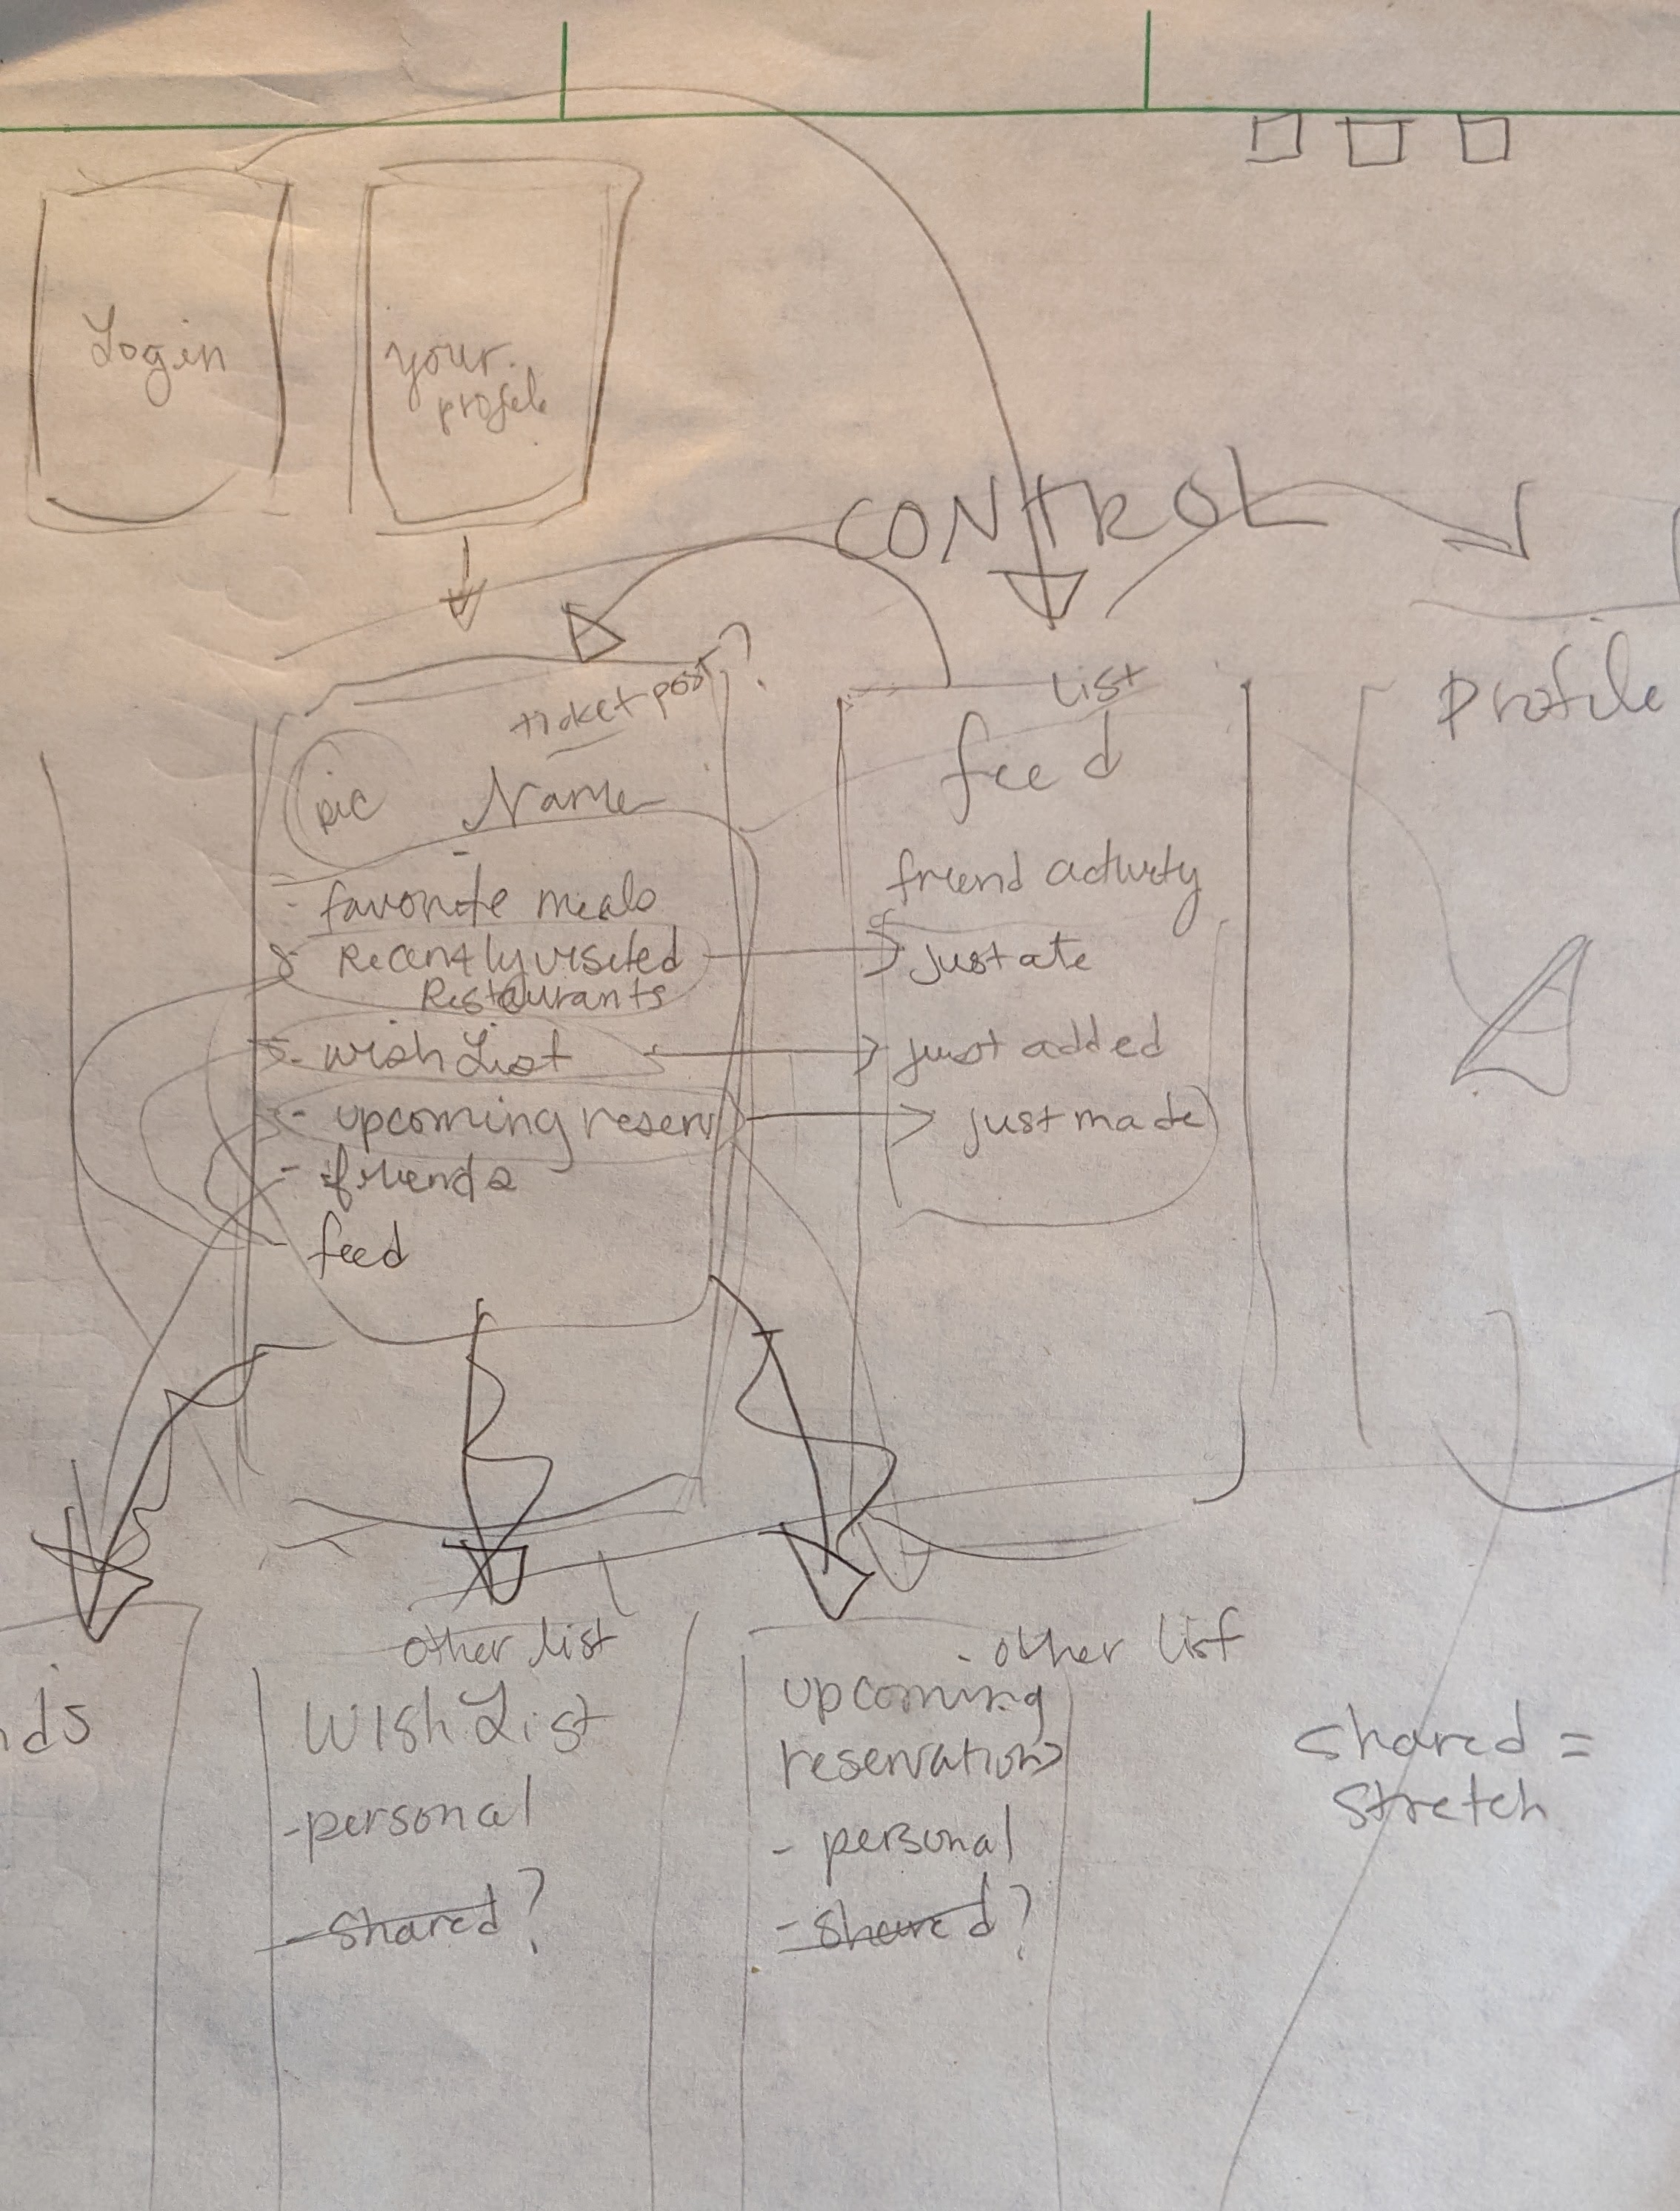 Login
your
profile
CONTROL
ticket post?
pic
Name
- favorite meals
Recently visited
Restaurants
- wish List
- upcoming reserv
- friends
feed
List
feed
friend activity
just ate
just added
just made
Profile
nds
other list
Wish List
- personal
- shared?
- other list
upcoming
reservations
- personal
- shared?
shared =
stretch